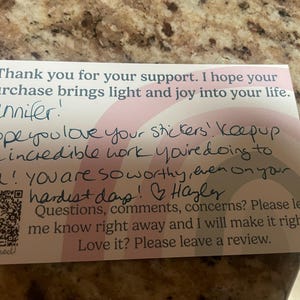 Thank you for your support. I hope your
urchase brings light and joy into your life.
nnifer!
ope you love your stickers! Keep up
incredible work you're doing to
! you are so worthy, even on your
hardest days! ♡ Hayley
Questions, comments, concerns? Please le
me know right away and I will make it righ
Love it? Please leave a review.